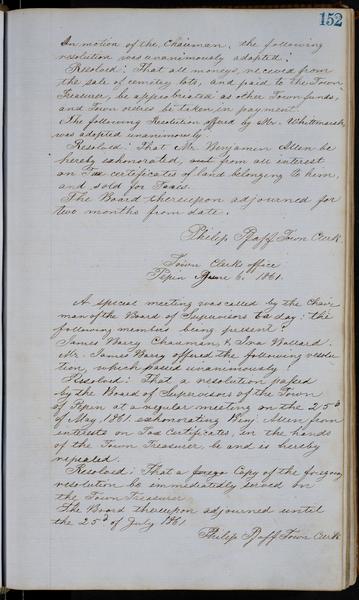 152
On motion of the Chairman, the following
resolution was unanimously adopted:
Resolved: That all moneys, received from
the sale of cemetery lots, and paid to the Town
Treasurer, be appropriated as other Town funds,
and Town orders be taken in payment.
The following Resolution offered by Mr. Whittmarsh,
was adopted unanimously
Resolved: That Mr. Benjamin Allen be
hereby exhonorated, from all interest
on Tax certificates of land belonging to him,
and sold for Taxes.
The Board thereupon adjourned for
two months from date.
Philip Pfaff Town Clerk.
Town Clerk office
Pepin June 6. 1861.
A special meeting was called by the Chair
man of the Board of Supervisors to day: the
following members being present:
James Barry Chauman, & Iva Wallard.
Mr. James Barry offered the following resolu
tion, which passed unanimously:
Resolved: That a resolution passed
by the Board of Supervisors of the Town
of Pepin at a regular meeting on the 25d
of May 1861 exhonorating Benj. Allen from
interests on Tax Certificates, in the hands
of the Town Treasurer, be and is hereby
repealed.
Resolved: That a Copy of the foregoing
resolution be immediatly served on
the Town Treasurer
The Board thereupon adjourned until
the 25d of July 1861
Philip Pfaff Town Clerk